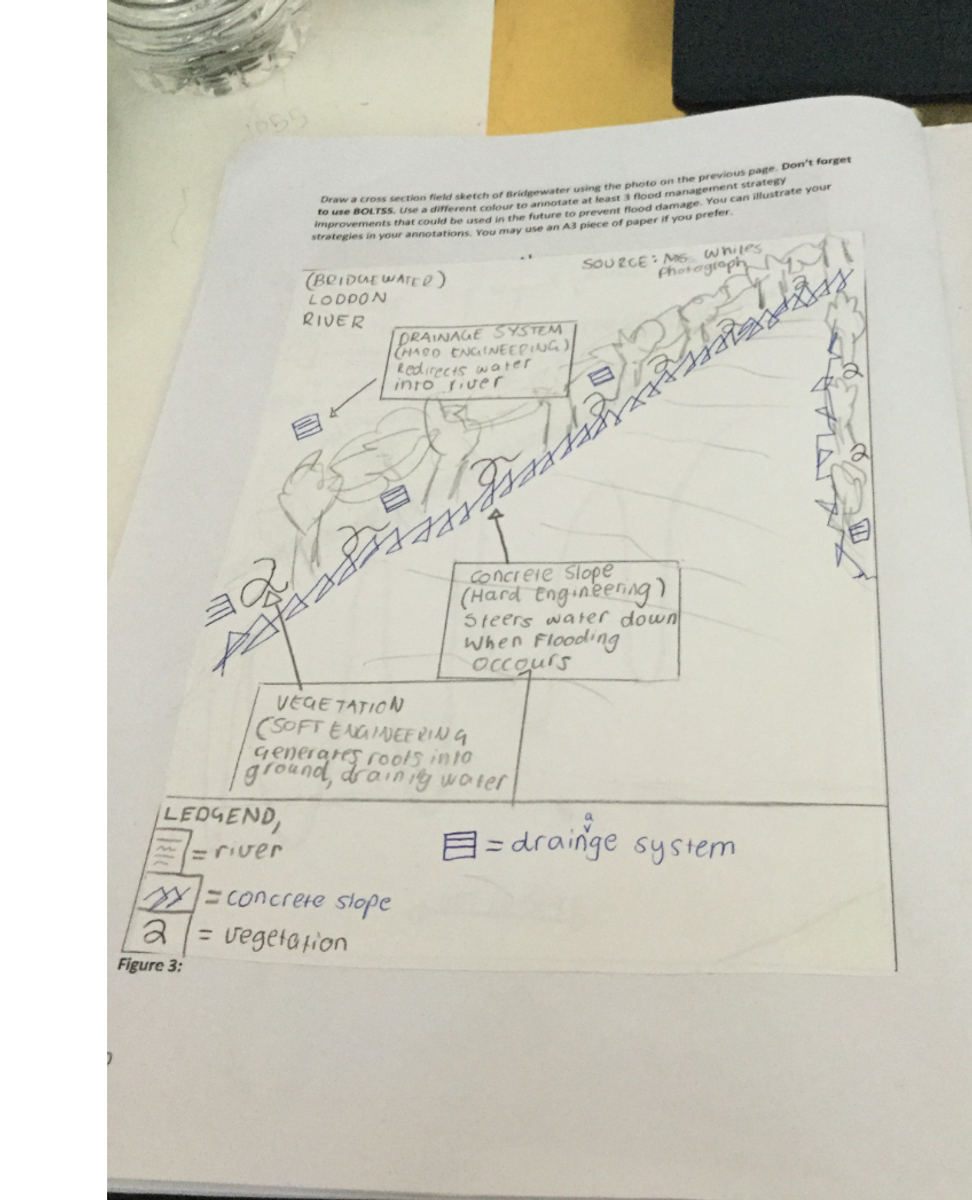 Draw a cross section field sketch of Bridgewater using the photo on the previous page. Don't forget
to use BOLTSS. Use a different colour to annotate at least 3 flood management strategy
improvements that could be used in the future to prevent flood damage. You can illustrate your
strategies in your annotations. You may use an A3 piece of paper if you prefer.
SOURCE: MS. Whites
Photograph
(BRIDGEWATER)
LODDON
RIVER
DRAINAGE SYSTEM
(HARD ENGINEERING)
Redirects water
into river
concrete slope
(Hard Engineering)
Steers water down
when Flooding
occours
VEGETATION
(SOFT ENGINEERING
generates roots into
ground, draining water
LEDGEND,
= river
= concrete slope
2 = vegetation
= drainage system
Figure 3: